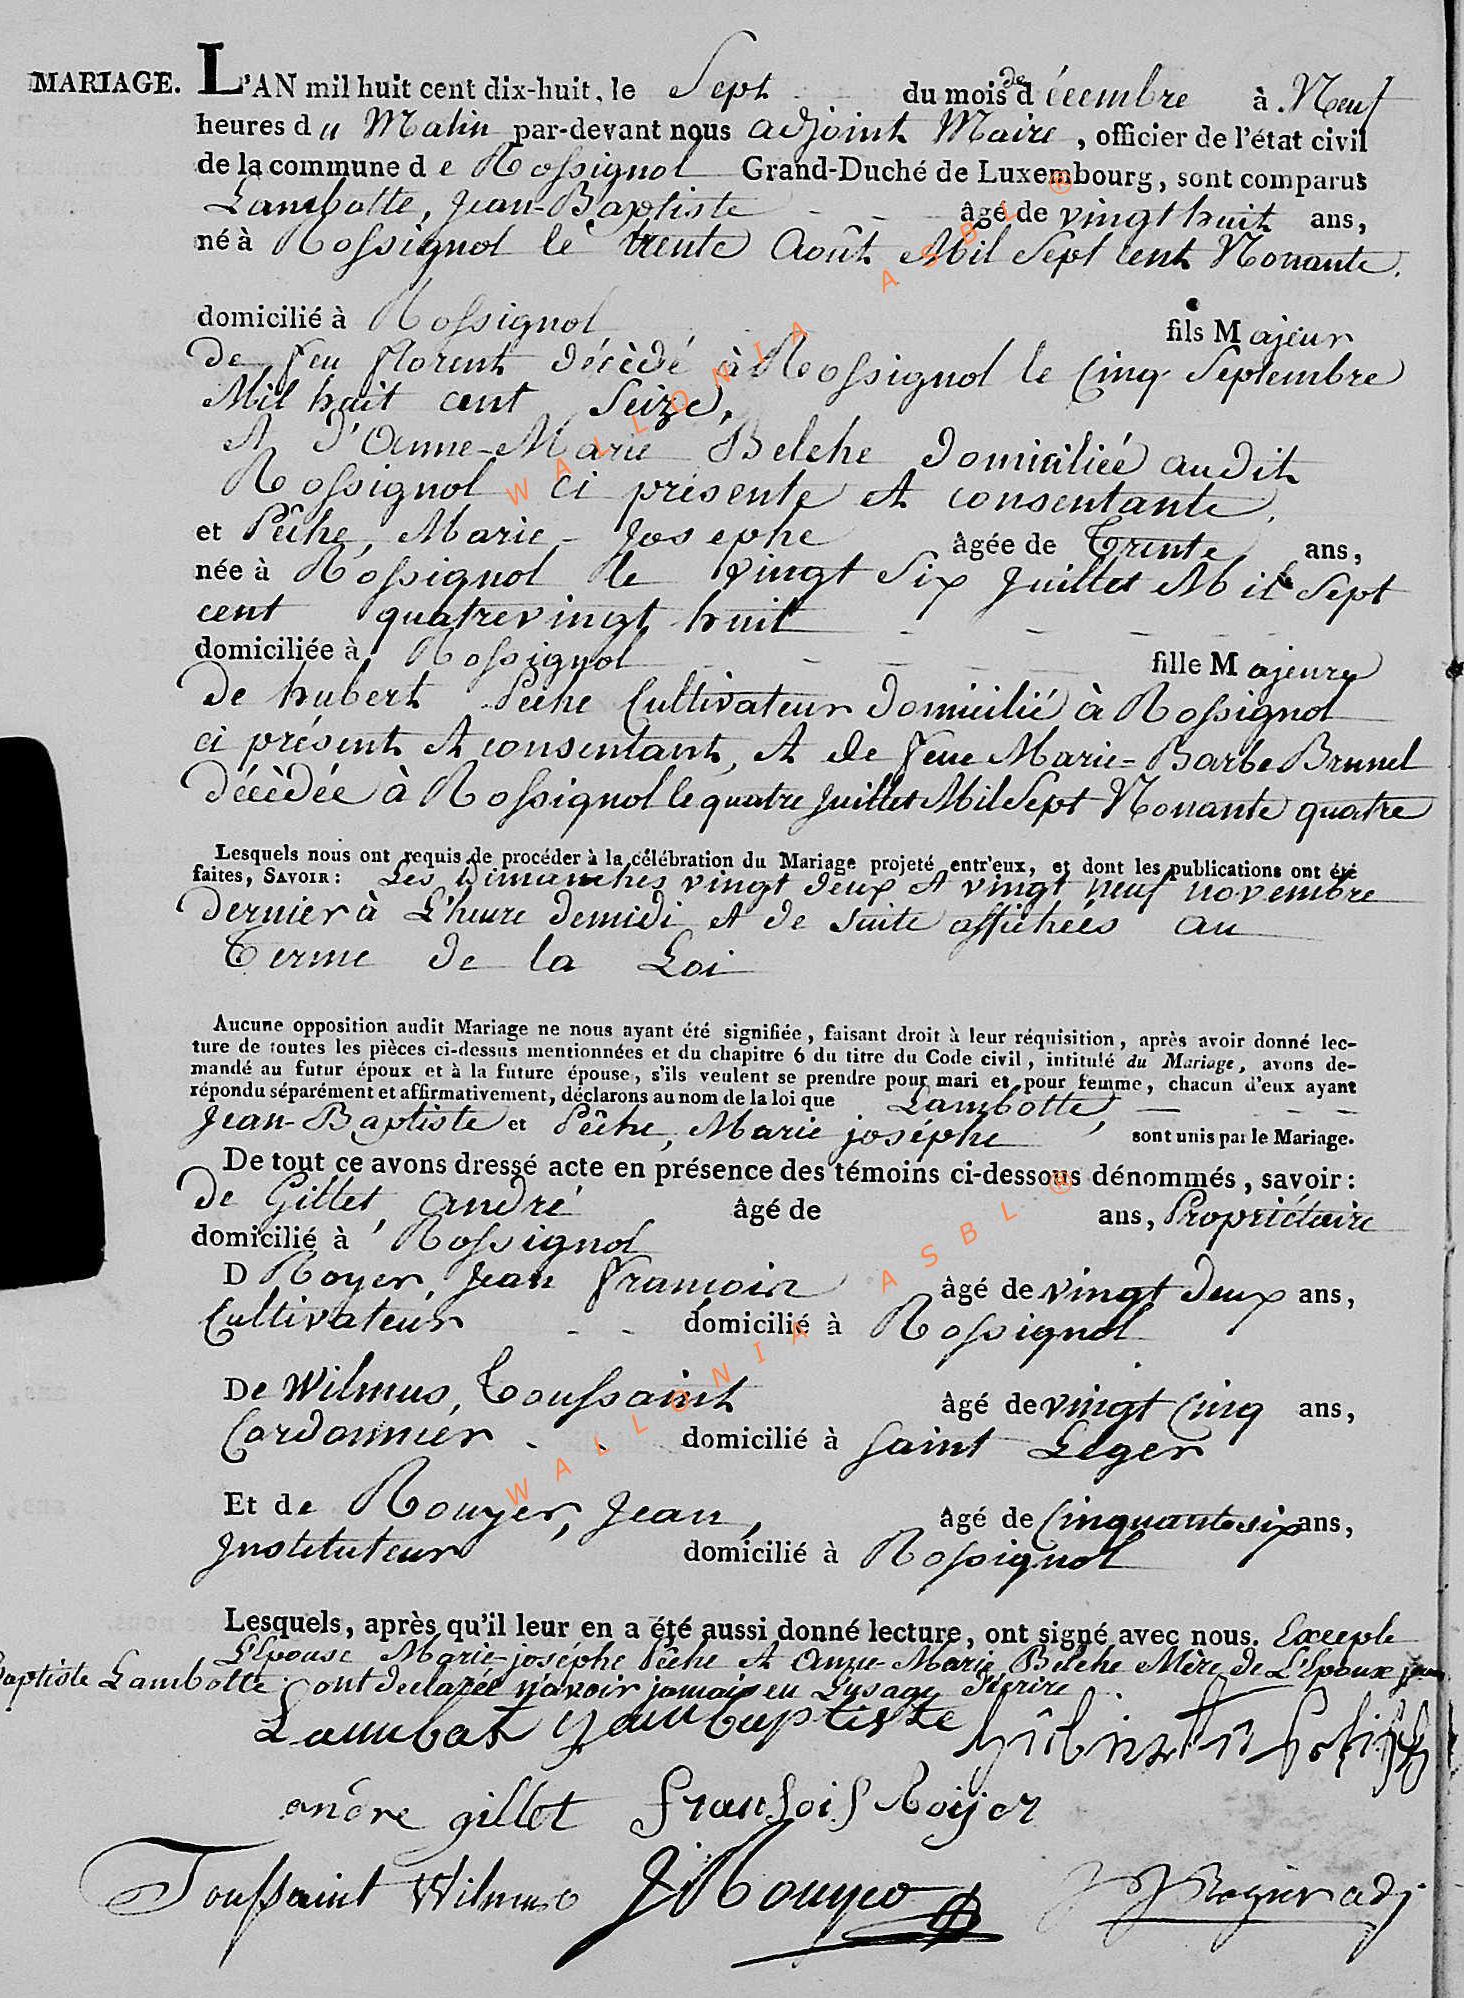 MARIAGE. L'AN mil huit cent dix-huit, le Sept du mois de décembre à Neuf
heures du Matin par-devant nous adjoint Maire, officier de l'état civil
de la commune de Rossignol Grand-Duché de Luxembourg, sont comparus
Lambotte, Jean-Baptiste âgé de vingt huit ans,
né à Rossignol le trente Août Mil Sept cent Nonante.
domicilié à Rossignol fils Majeur
De feu florent décèdé à Rossignol le Cinq Septembre
Mil huit cent Seize,
Et d'Anne-Marie Belche domiciliée audit
Rossignol ci présente et consentante,
et Pêche, Marie-Josephe âgée de Trente ans,
née à Rossignol le vingt Six Juillet Mil Sept
cent quatrevingt huit
domiciliée à Rossignol fille Majeure
De hubert Pêche Cultivateur domicilié à Rossignol
ci présent et consentant, et de feue Marie-Barbe Brunel
décèdée à Rossignol le quatre Juillet Mil Sept Nonante quatre
Lesquels nous ont requis de procéder à la célébration du Mariage projeté entr'eux, et dont les publications ont été
faites, SAVOIR: Les Dimanches vingt deux et vingt neuf novembre
dernier à L'heure demidi et de suite affichées au
Terme de la Loi
Aucune opposition audit Mariage ne nous ayant été signifiée, faisant droit à leur réquisition, après avoir donné lec-
ture de toutes les pièces ci-dessus mentionnées et du chapitre 6 du titre du Code civil, intitulé du Mariage, avons de-
mandé au futur époux et à la future épouse, s'ils veulent se prendre pour mari et pour femme, chacun d'eux ayant
répondu séparément et affirmativement, déclarons au nom de la loi que Lambotte,
Jean-Baptiste et Pêche, Marie joséphe sont unis par le Mariage.
De tout ce avons dressé acte en présence des témoins ci-dessous dénommés, savoir:
de Gillet, andré âgé de ans, Propriétaire
domicilié à Rossignol
D Royer, Jean françois âgé de vingt deux ans,
Cultivateur domicilié à Rossignol
De Wilmus, Toussaint âgé de vingt Cinq ans,
Cordonnier domicilié à Saint Leger
Et de Rouyer, Jean, âgé de Cinquante six ans,
Instituteur domicilié à Rossignol
Lesquels, après qu'il leur en a été aussi donné lecture, ont signé avec nous. Excepte
L'Epouse Marie-joséphe Pêche et Anne-Marie Belche Mère de L'Epoux jean
Baptiste Lambotte ont declarée n'avoir jamais eu L'usage d'écrire
Lambot Jean baptiste
andre gillet franSoiS Roijer
Toussaint Wilmus J Rouyer
WALLONIA ASBL ®
WALLONIA ASBL ®